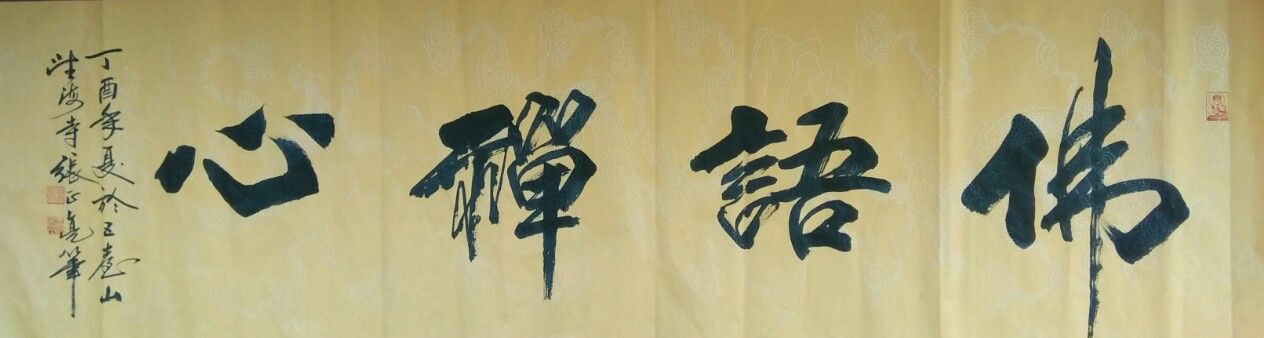 佛語禪心
丁酉年夏於五臺山
望海寺張正亮筆